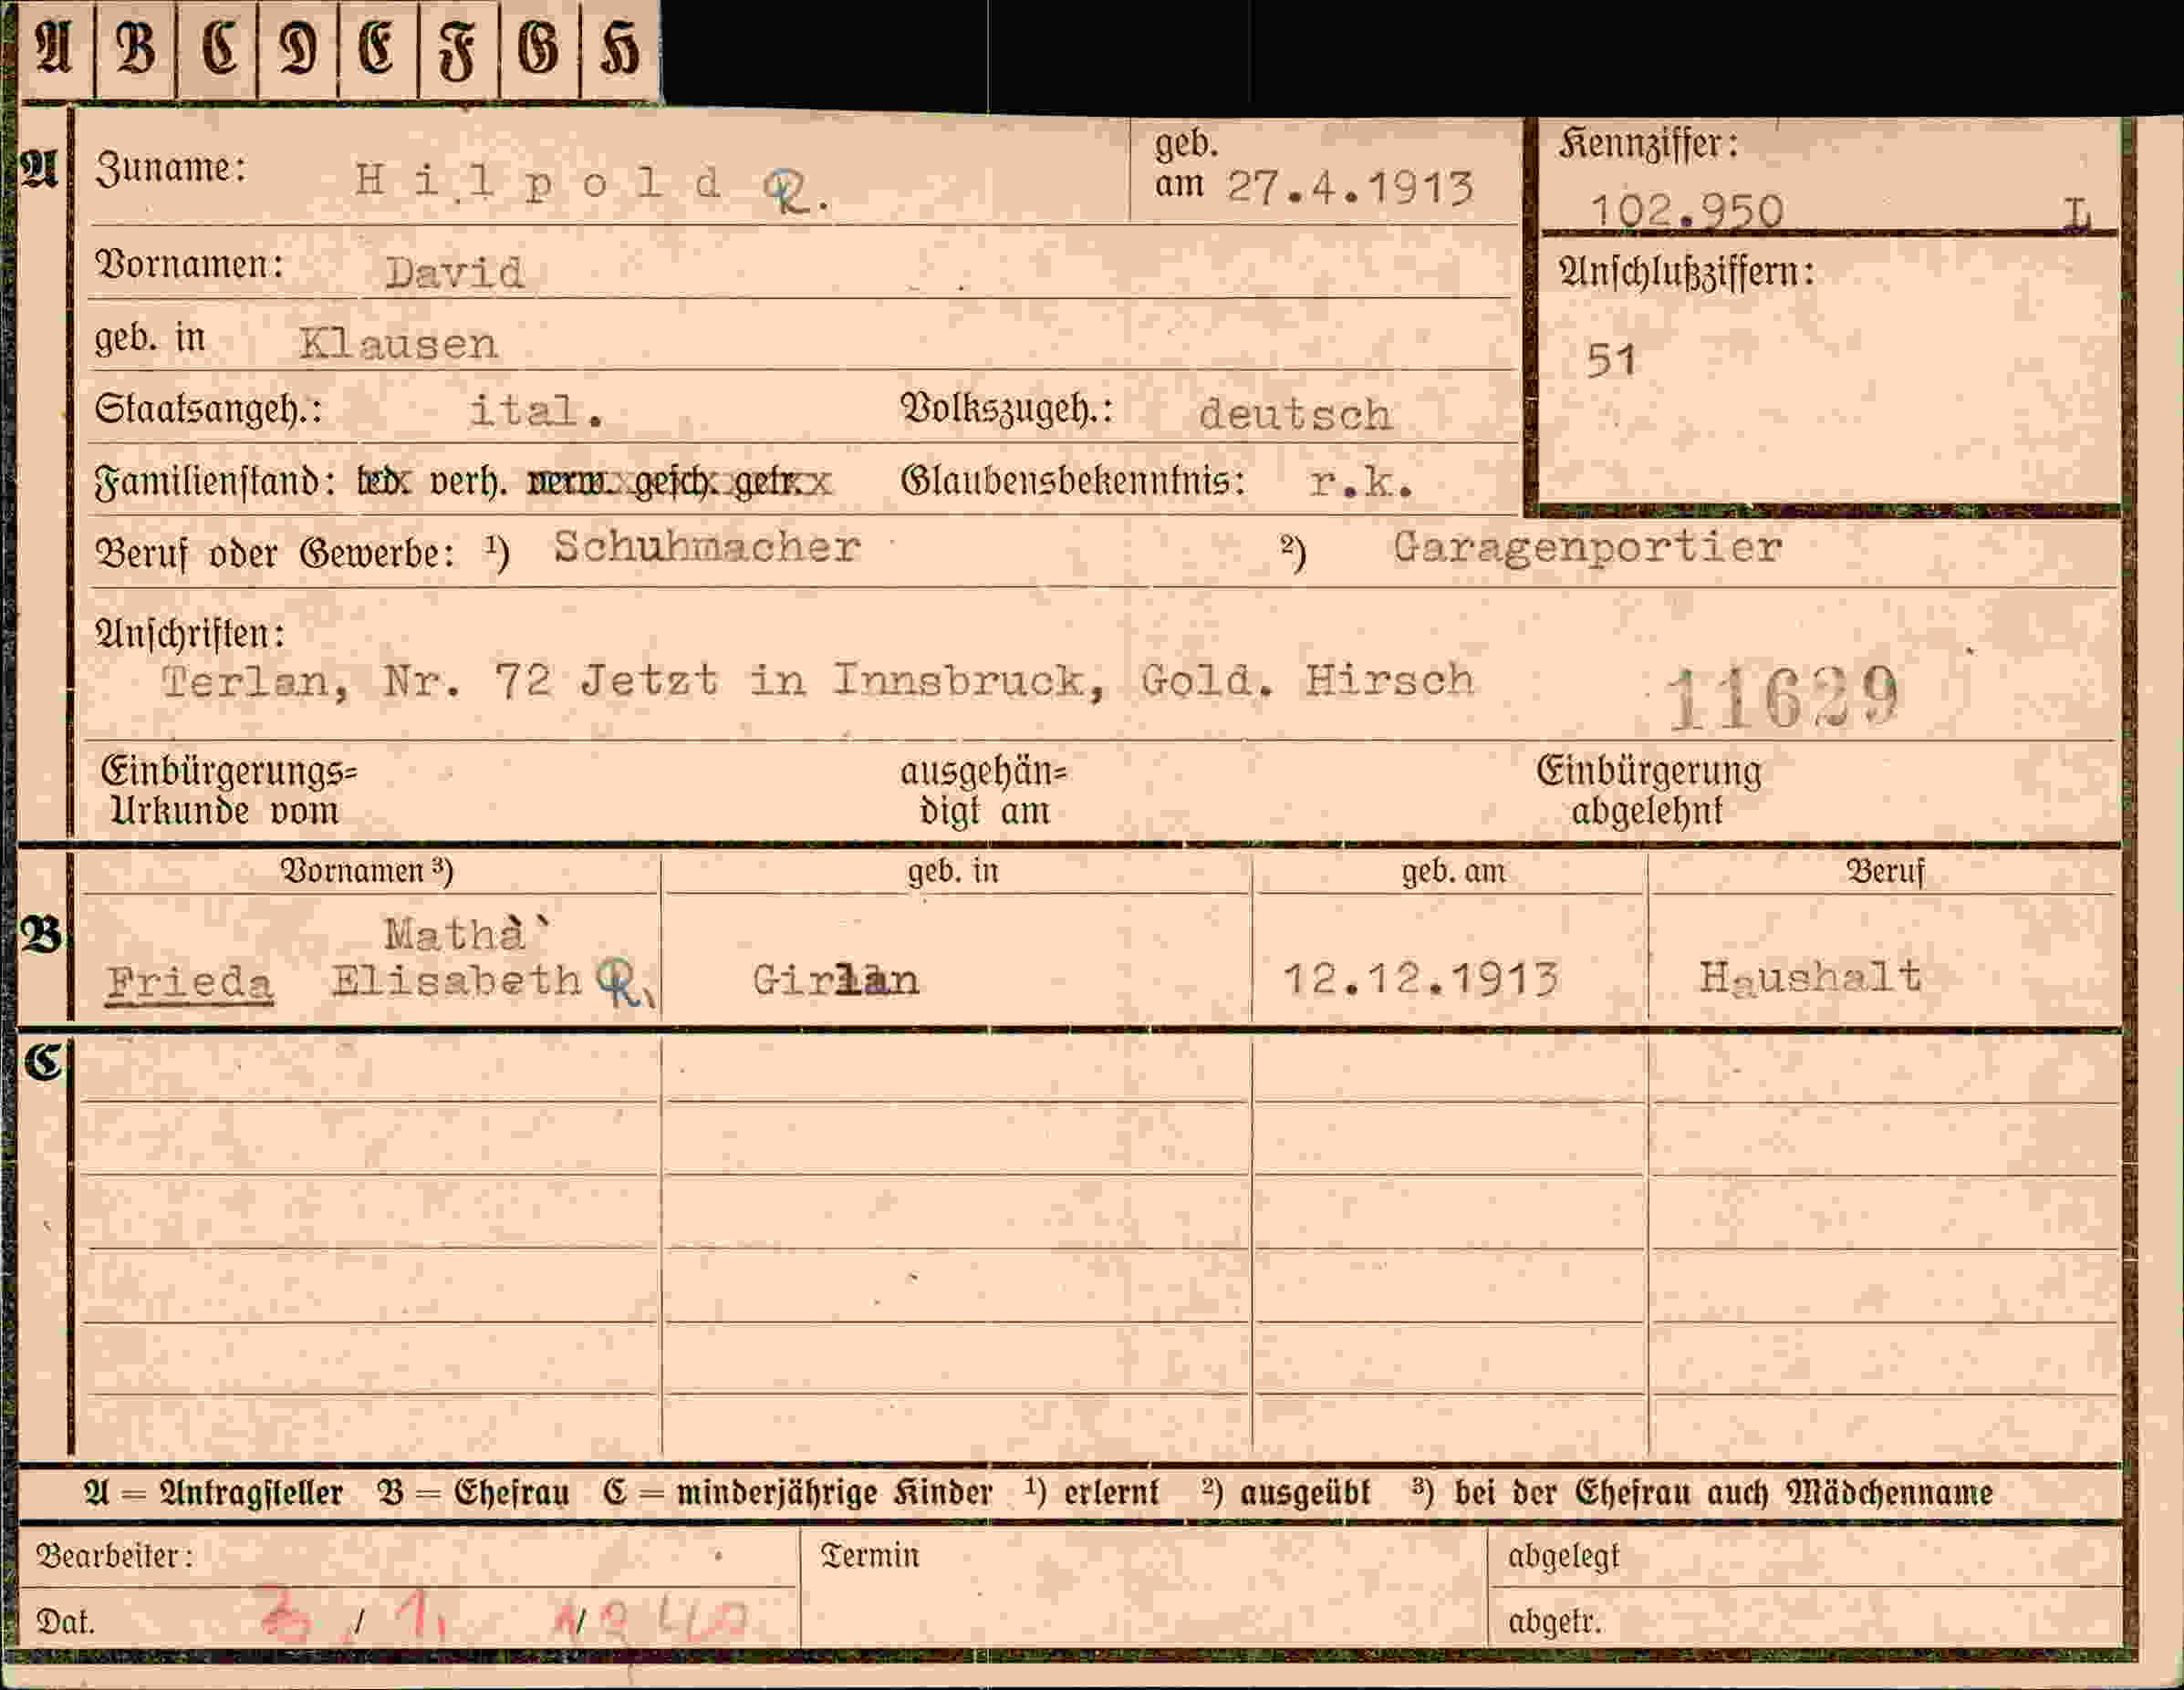 A B C D E F G H
A Zuname: Hilpold R. geb. am 27.4.1913
Kennziffer: 102.950 L
Vornamen: David
Anschlußziffern:
51
geb. in Klausen
Staatsangeh.: ital. Volkszugeh.: deutsch
Familienstand: led. verh. verw. gesch. getr. Glaubensbekenntnis: r.k.
Beruf oder Gewerbe: ¹) Schuhmacher ²) Garagenportier
Anschriften:
Terlan, Nr. 72 Jetzt in Innsbruck, Gold. Hirsch 11629
Einbürgerungs= ausgehän= Einbürgerung
Urkunde vom digt am abgelehnt
Vornamen ³) geb. in geb. am Beruf
B Mathà`
Frieda Elisabeth R. Girlan 12.12.1913 Haushalt
C
A = Antragsteller B = Ehefrau C = minderjährige Kinder ¹) erlernt ²) ausgeübt ³) bei der Ehefrau auch Mädchenname
Bearbeiter: Termin abgelegt
Dat. / 1. / 1940 abgetr.